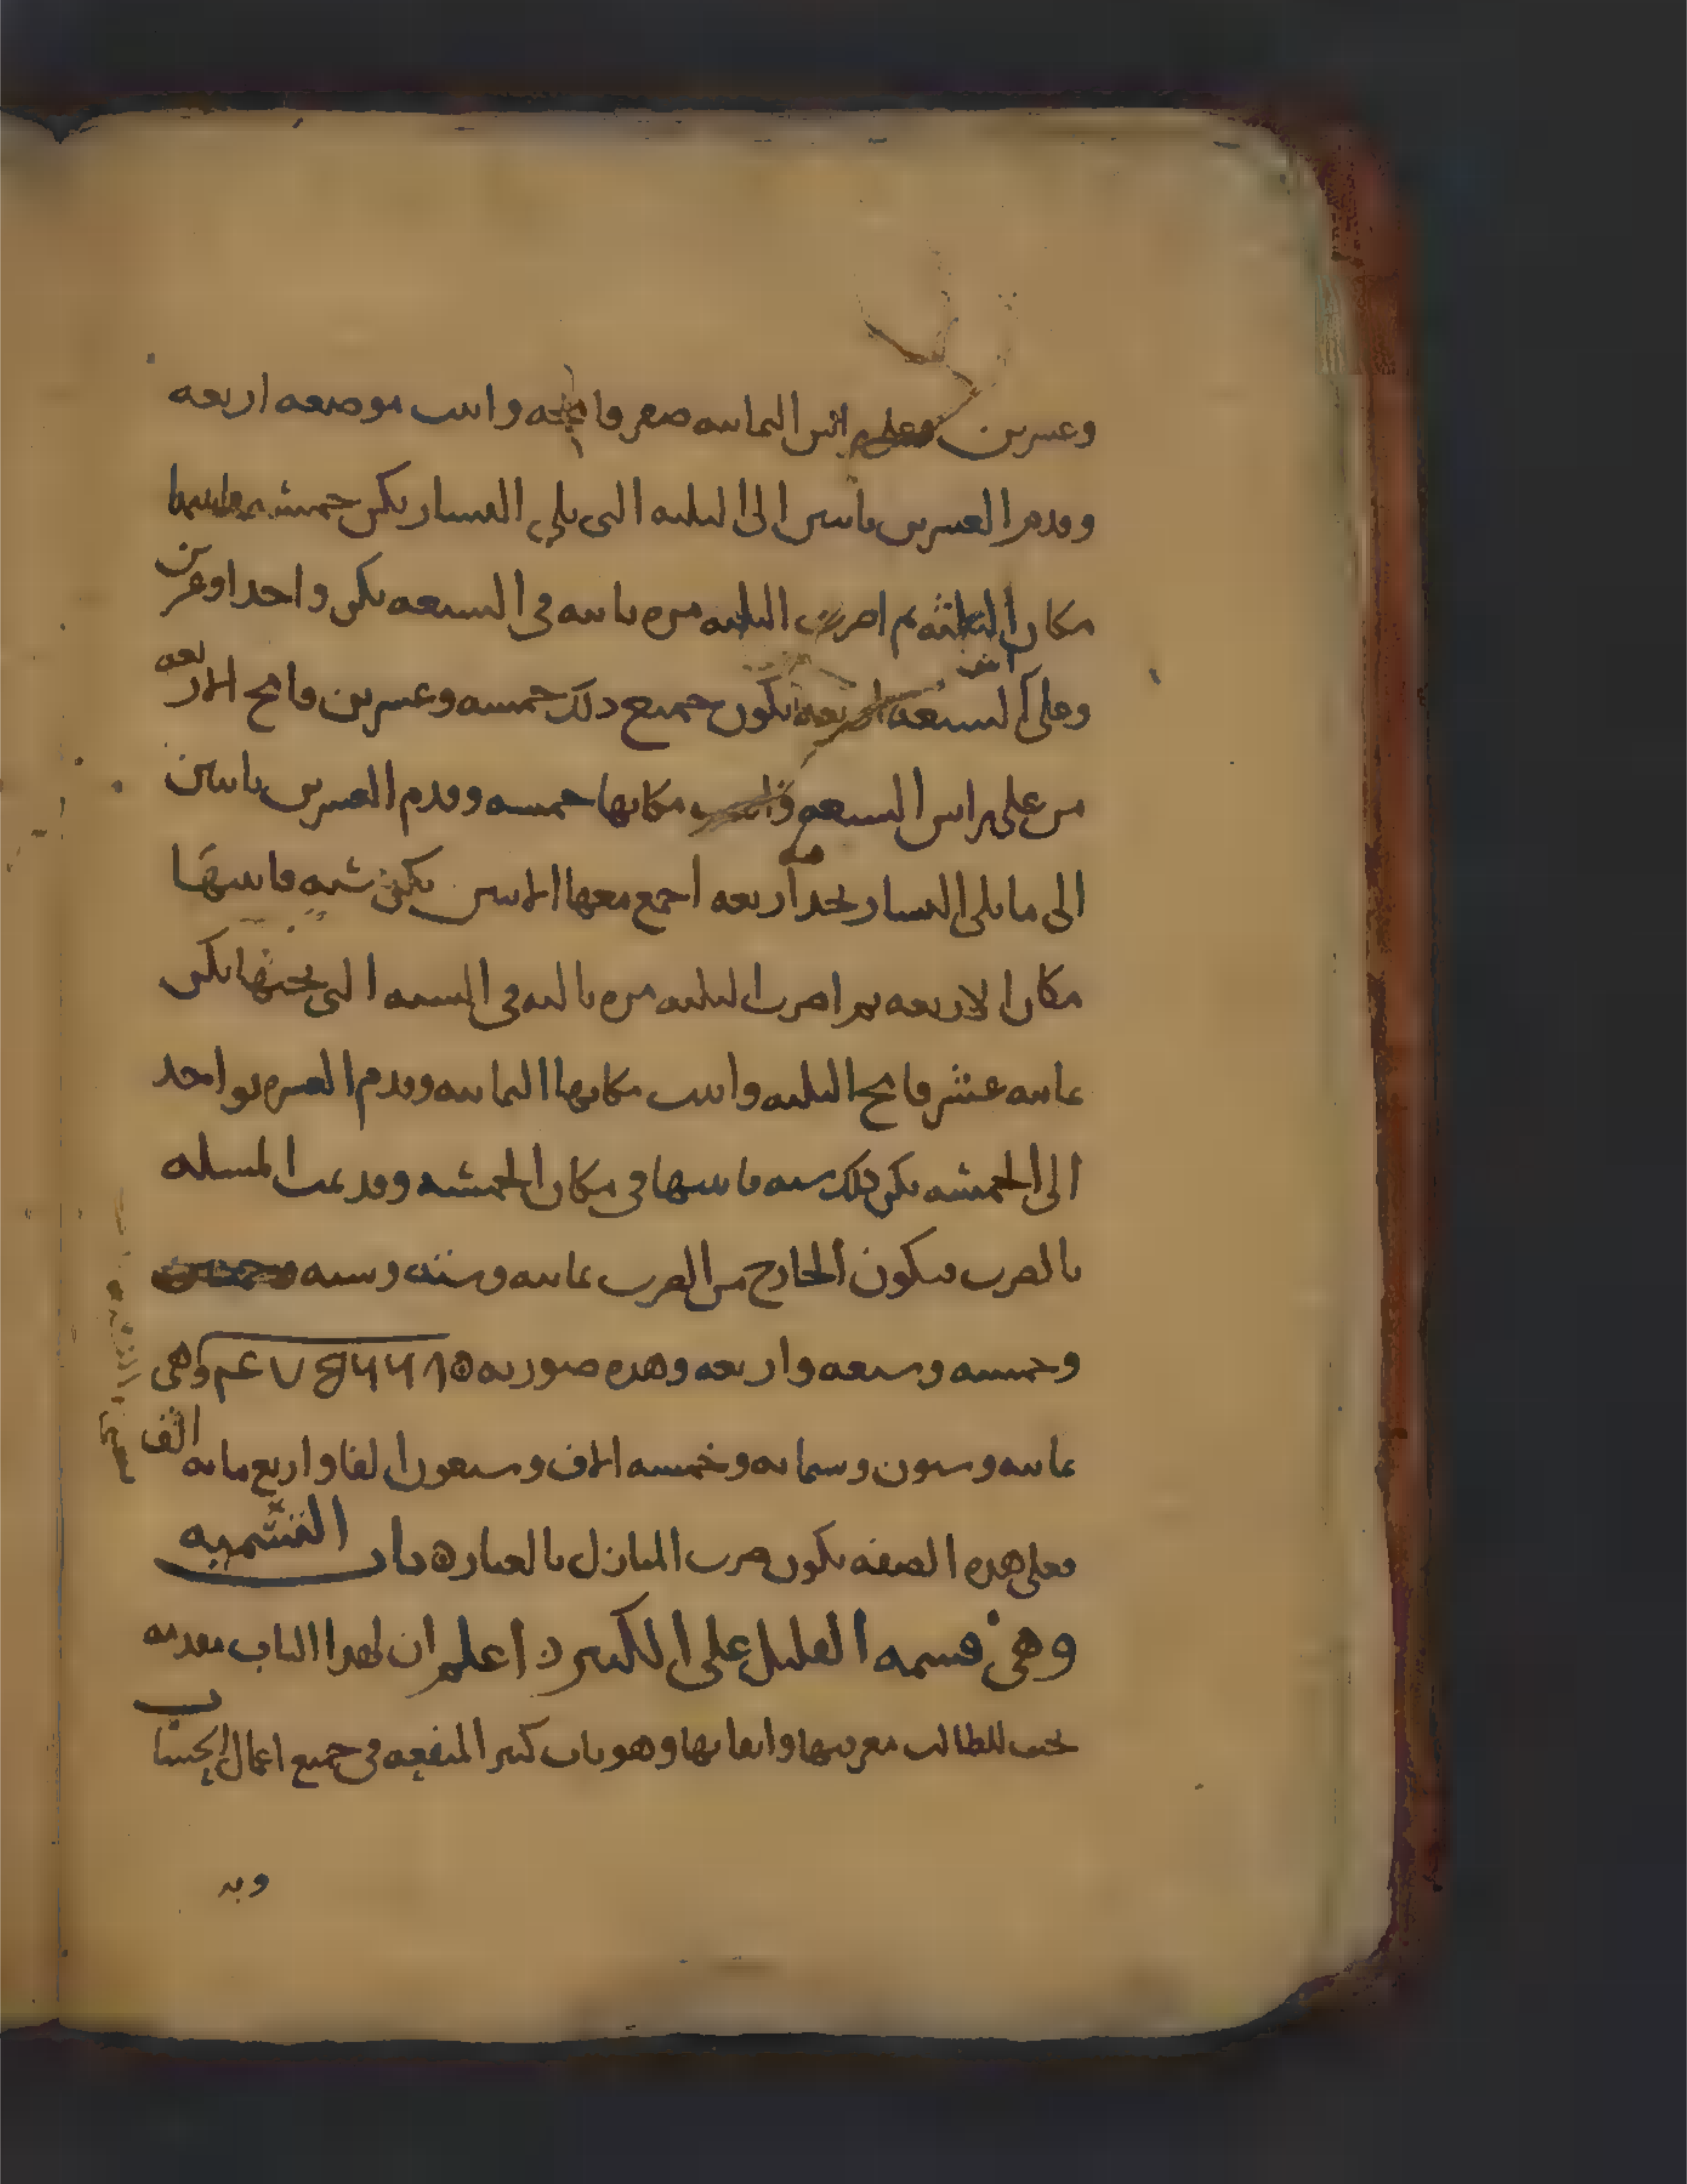 وعشرين وعلى راس الثمانيه صفر فامحه واثبت موضعه اربعه
وقدم العشرين باثنين الى الثلثه التى يلي اليسار يكن خمسه فاثبتها
مكان الثلثه ثم اضرب الثلثه مره ثانيه في السبعه يكن واحدا وعشرين
وعلى راس السبعه اربعه يكون جميع ذلك خمسه وعشرين فامح الاربعه
من على راس السبعه واثبت مكانها خمسه وقدم العشرين باثنين
الى ما يلي اليسار تجد اربعه اجمع معها الاثنين يكن سته فاثبتها
مكان الاربعه ثم اضرب الثلثه مره ثالثه في السته التى تحتها يكن
ثمانيه عشر فامح الثلثه واثبت مكانها الثمانيه وقدم العشره بواحد
الى الخمسه يكن ذلك سته فاثبتها في مكان الخمسه وقد تمت المسله
بالضرب فيكون الخارج من الضرب ثمانيه وسته وسته
وخمسه وسبعه واربعه وهذه صورته وهي
ثمانيه وستون وستمايه وخمسه الاف وسبعون الفا واربع مايه الف
فعلى هذه الصفه يكون ضرب المنازل بالعباره باب التسميه
وهي قسمه القليل على الكثير اعلم ان لهذا الباب مقدمه
يجب للطالب معرفتها واتقانها وهو باب كثير المنفعه في جميع اعمال الحساب
وبه